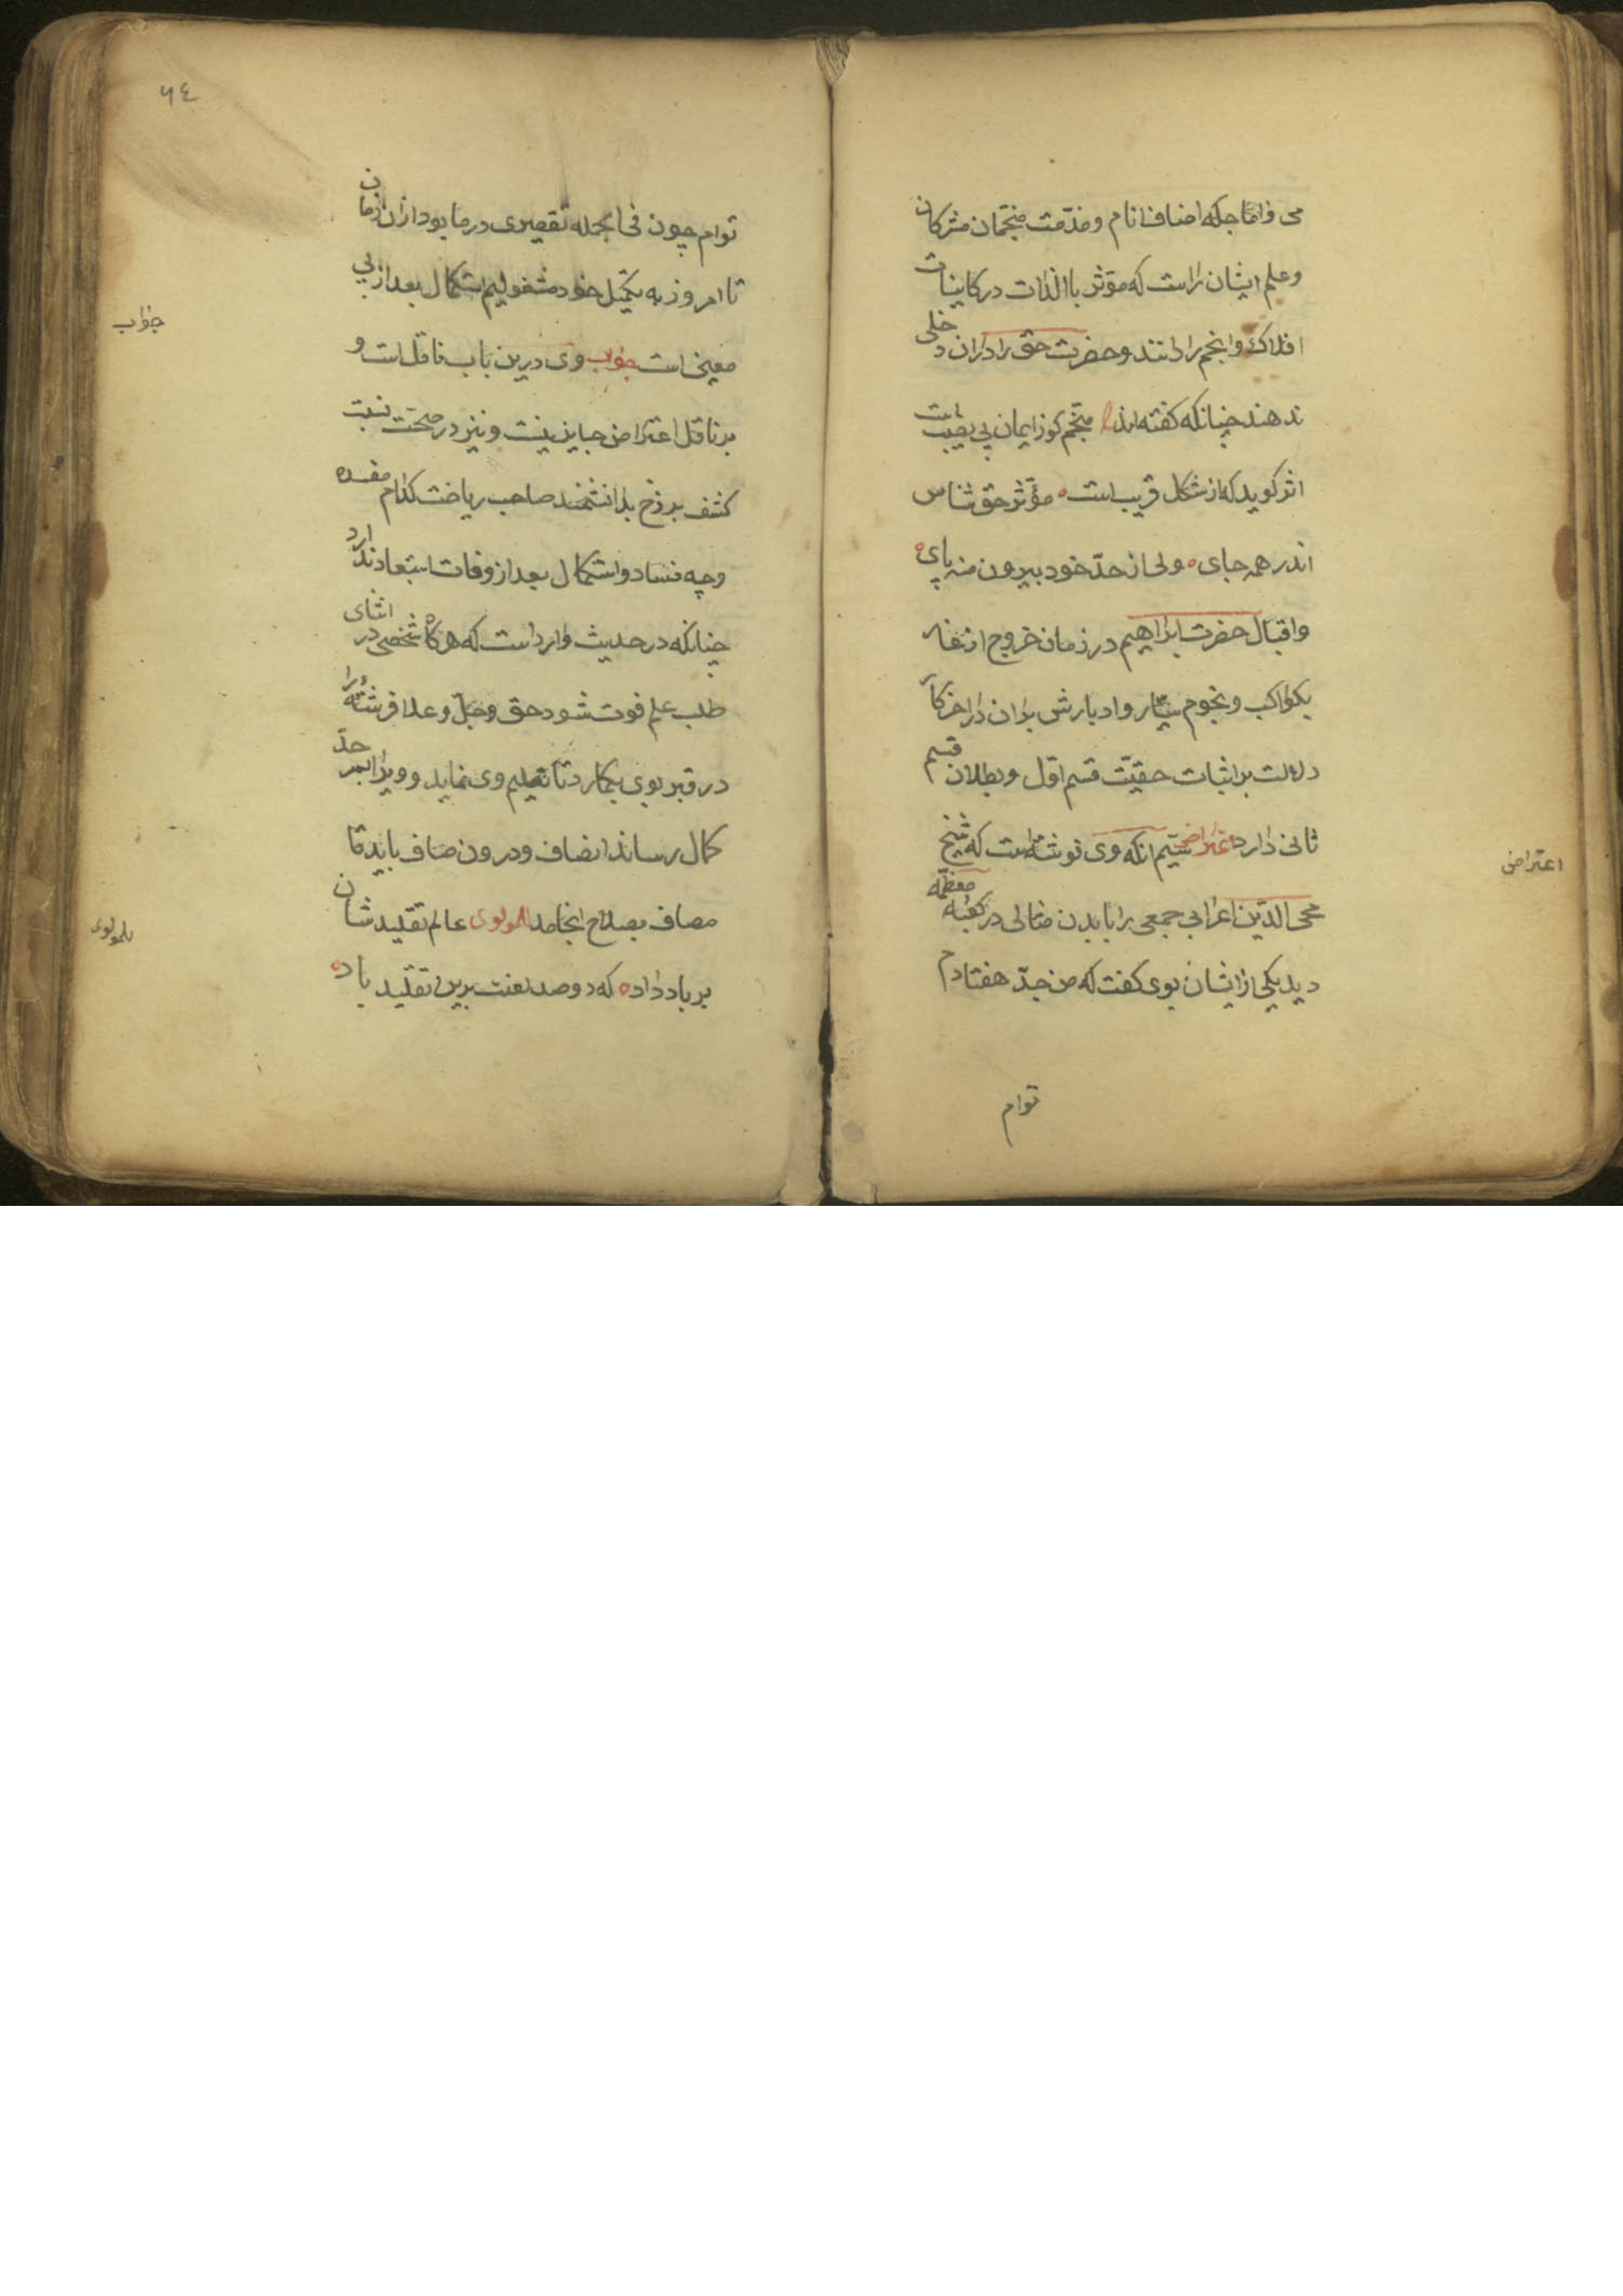 می واماجکه اصناف انام ومذمّت منجّمان مشرکان
وعلم ایشان راست که مؤثر باالذات در کاینات
افلاک وانجم را دانند وحضرت حق را دران دخلی
ندهند چنانکه کفته اند منجّم کوز ایمان بی نصیبست
اثر کوید که از شکل قریب است مؤثر حق شناس
اندر همه جای ولی از حدّ خود بیرون منه پای
واقبال حضرت ابراهیم در زمان خروج از غار
بکواکب ونجوم سیّار وادبارش بران در اخر کار
دلالت بر اثبات حقیّت قسم اوّل وبطلان قسم
ثانی دارد اعتراض سیم انکه وی نوشته است که شیخ
محی الدّین اعرابی جمعی را بابدن مثالی در کعبه معظمه
دید یکی از ایشان بوی کفت که من جدّ هفتادم
توام
اعتراض
٦٤
توام چون فی الجمله تقصیری در ما بود ازان زمان
تا امروز به تکمیل خود مشغولیم استکمال بعد از بی
معنی است جواب وی درین باب ناقل است و
بر ناقل اعتراض جایز نیست ونیز در صحّت نسبت
کشف برزخ بدانشمند صاحب ریاضت کدام مفسده
وچه فساد واستکمال بعد از وفات استبعاد ندارد
چنانکه در حدیث وارد است که هرکاه شخصی در اثنای
طلب علم فوت شود حق وجلّ وعلا فرشته را
در قبر بوی بکمارد تا تعلیم وی نماید وویرا بسر حدّ
کمال رساند انصاف ودرون صاف باید تا
مصاف بصلاح انجامد المولوی عالم تقلید شان
بر باد داده که دوصد لعنت برین تقلید باد
جواب
للمولوی